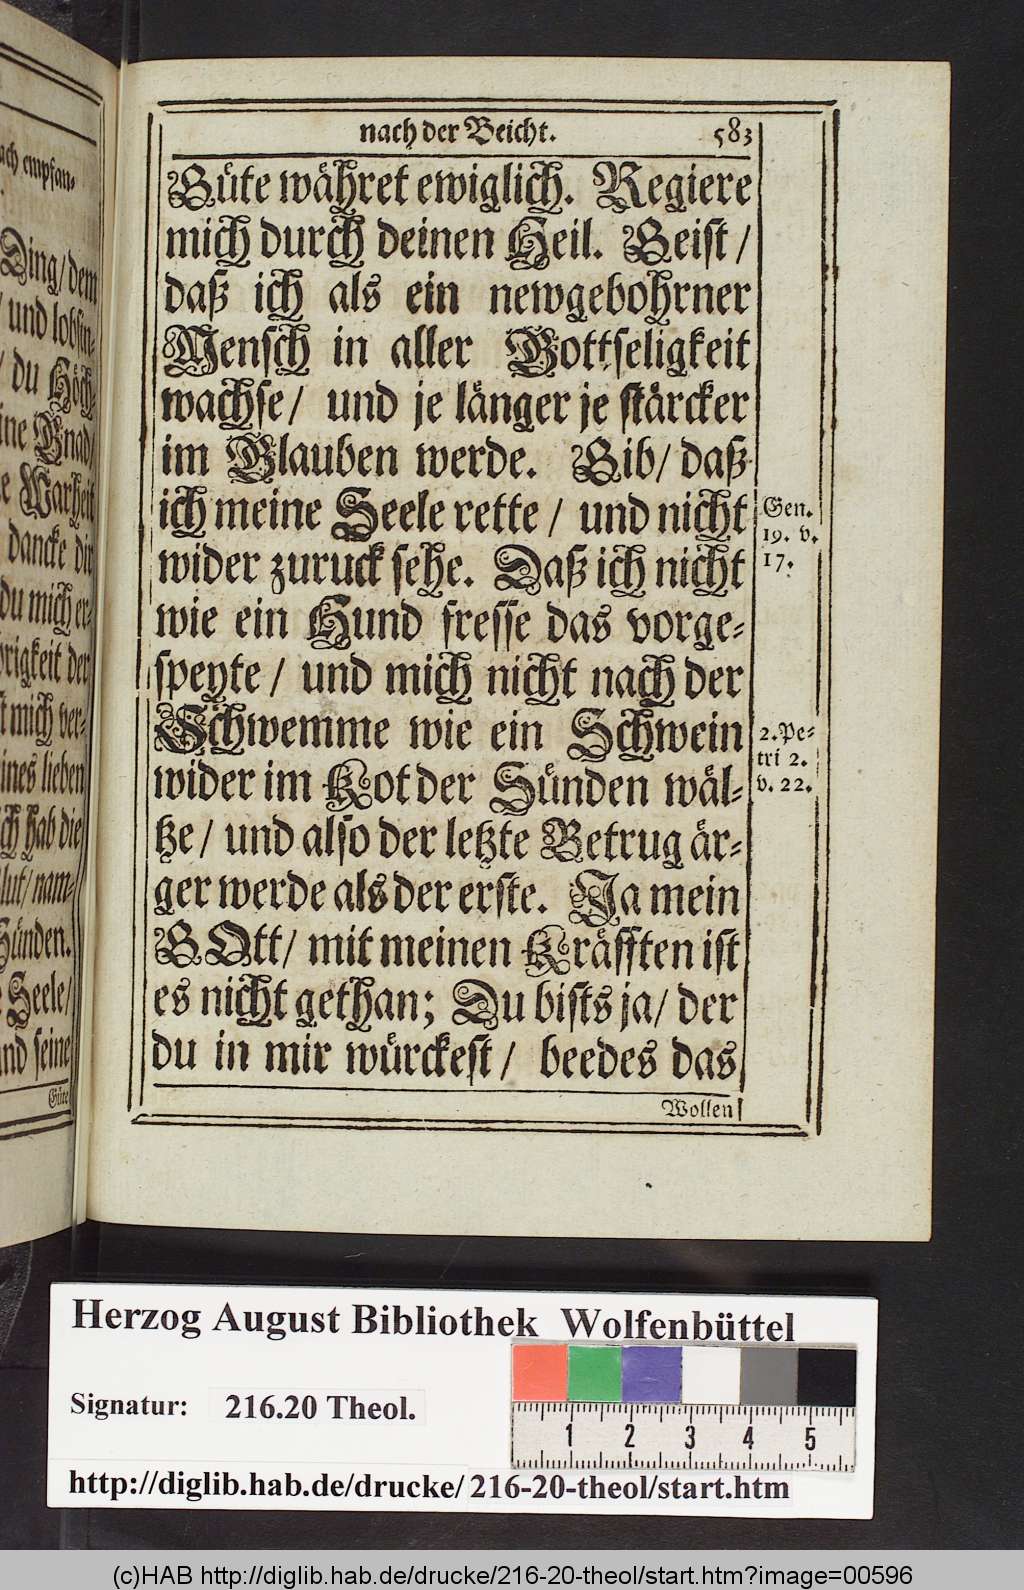 ach empfan⸗
Ding/ dem
und lobsin⸗
/ du Höch⸗
ine Gnad/
e Warheit
dancke dir
du mich er⸗
örigkeit der
t mich ver⸗
ines lieben
ch hab die
lut/ nam⸗
Sünden.
Seele/
und seine
Güte
nach der Beicht. 583
Güte währet ewiglich. Regiere
mich durch deinen Heil. Geist/
daß ich als ein newgebohrner
Mensch in aller Gottseligkeit
wachse/ und je länger je stärcker
im Glauben werde. Gib/ daß
ich meine Seele rette/ und nicht
wider zuruck sehe. Daß ich nicht
wie ein Hund fresse das vorge⸗
speyte/ und mich nicht nach der
Schwemme wie ein Schwein
wider im Kot der Sünden wäl⸗
tze/ und also der letzte Betrug är⸗
ger werde als der erste. Ja mein
GOtt/ mit meinen Kräfften ist
es nicht gethan; Du bists ja/ der
du in mir würckest/ beedes das
Wollen
Gen.
19. v.
17.
2. Pe⸗
tri 2.
v. 22.
Herzog August Bibliothek Wolfenbüttel
Signatur: 216.20 Theol.
1 2 3 4 5
http://diglib.hab.de/drucke/216-20-theol/start.htm
(c)HAB http://diglib.hab.de/drucke/216-20-theol/start.htm?image=00596